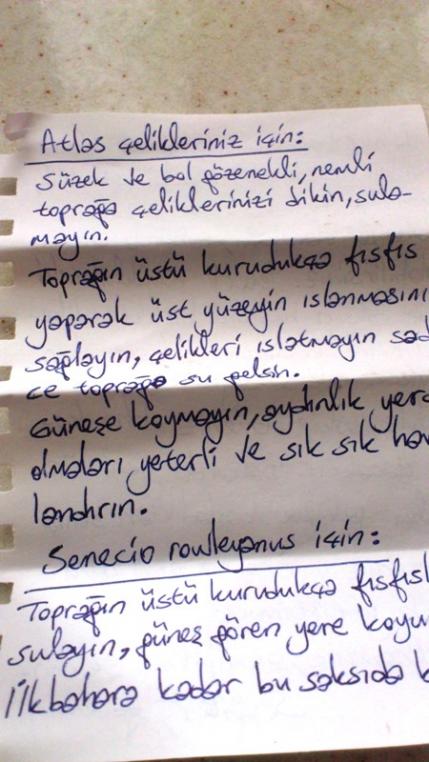 Atlas çelikleriniz için:
Süzek ve bol gözenekli, nemli
toprağa çeliklerinizi dikin, sula-
mayın.
Toprağın üstü kurudukça fısfıs
yaparak üst yüzeyin ıslanmasını
sağlayın, çelikleri ıslatmayın sad
ce toprağa su gelsin.
Güneşe koymayın, aydınlık yerd
olmaları yeterli ve sık sık hav
landırın.
Senecio rowleyanus için:
Toprağın üstü kurudukça fısfısl
sulayın, güneş gören yere koyu
İlkbahara kadar bu saksıda k